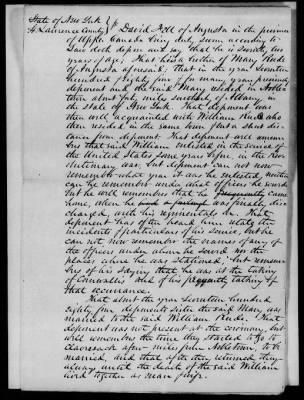 State of New York
St Lawrence County } ss David Holl of Augusta in the province
of Upper Canada being duly sworn according to
Law doth depose and say that he is Seventy two
years of age; That he is a brother of Mary Rude
of Augusta aforesaid; that in the year Seventeen
hundred & eighty four & for many years previous
deponent and the said Mary resided in
town about four miles of Albany, in
the State of New York. That deponent was
then well acquainted with William Rude who
then resided in the same town but a short dis
tance from deponent. That deponent well remem
bers that said William enlisted in the service of
the United States some years before, in the Rev
olutionary war, but deponent can not now
remember what year it was he enlisted, neither
can he remember under what officers he served
But he well remembers that he frequently came
home, when he was finally dis
charged, with his regimentals on. That
deponent has often heard him relate the
incidents & particulars of his service, but he
can not now remember the names of any of
the officers under whom he served nor the
places where he was stationed; but remem
bers of his saying that he was at the taking
of Cornwallis and of his frequently talking of
that occurrence.
That about the year Seventeen hundred
Eighty four deponents sister the said Mary was
married to the said William Rude. That
deponent was not present at the ceremony, but
well remembers the time they started to go to
Claverack a few miles from to be
married, and that after they returned they
always until the death of the said William
lived together as man & wife.